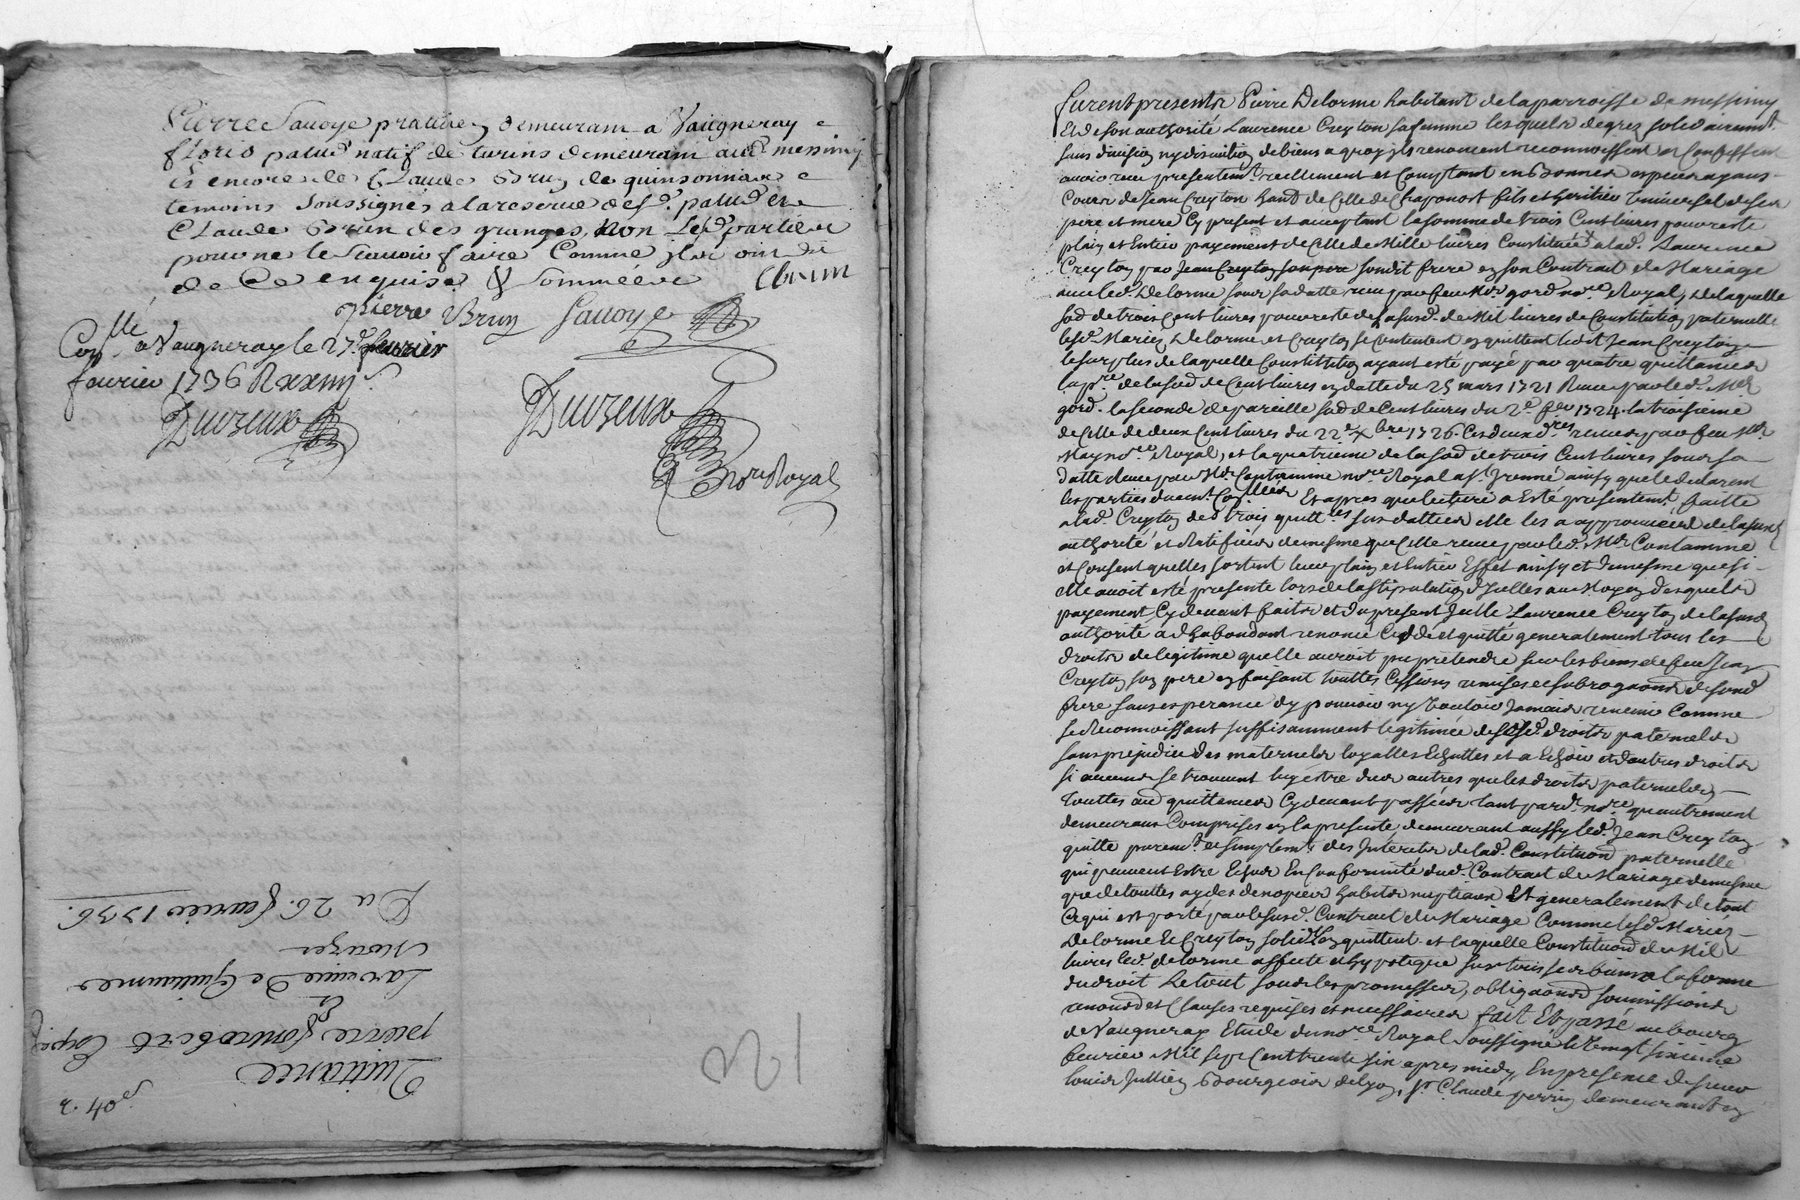 Pierre Sauoye praticien demeurant a Vaugneray
floris natif de turins demeurant aud. messimy
et encore de Claude Brun de quinsonnas
temoins soussignés a la reserve des d.
Claude Brun des granges, non Lesd parties
pour ne le scauoir faire Comme jls ont dit
de Ce enquises & sommées
Pierre Brun Sauoye
Con.llé a Vaugneray le 27e feurier
feurier 1736 R
Duvzeux
Duvzeux
nore Royal
Du 26. feurier 1736.
La veuue De Guillaume
pierre
Quittance
furent presents Pierre Delorme habitant de la parroisse de messimy
Et de son authorité Laurence Creyton sa femme lesquels de gres solidairement
sans diuision ny discution de biens a quoy jls renoncent reconnoissent et Confessent
auoir receu presentemt. reellement et Comptant en Bonnes especes ayans
Cours de Jean Creyton habt. de Celle de Chaponost fils et heritier Vniuersel de ses
pere et mere Cy present et acceptant la somme de trois Cent liures pour reste
plain et Entier payement de Celle de Mille liures Constituée a lad. Laurence
Creyton par Jean Creyton son pere sondit frere en son Contrat de Mariage
auec led. Delorme sous sa datte receu par feu Me gord nore Royal, de laquelle
sod de trois Cent liures pour reste de la susd. de Mil liures de Constitution paternelle
lesd. Mariés Delorme et Creyton se Contentent en quittent led. Jean Creyton
le surplus de laquelle Constitution ayant esté payé par quatre quittances
la pre de la sod de Cent liures en datte du 25 mars 1721 Receue par led. Me
gord. la seconde de pareille sod de Cent liures du 2e 1724. la troisieme
de Celle de deux Cent liures du 22e Xbre 1726. Ces deux dres receues par feu Me
May nore Royal, et la quatrieme de la sod de trois Cent liures sous sa
datte receue par Me Contamine nore Royal a st. jrenné ainsy que le declarent
les parties Et apres que lecture a Esté presentemt. faitte
a lad. Creyton desd trois quittces sus dattées elle les a approuuées de la susd
authorité et Ratifiées de mesme que Celle receue par led. Me Contamine
et Consent quelles sortent leur plain et Entier Effet ainsy et de mesme que si
elle auoit esté presente lors de la stipulation d'jcelles au Moyen desquels
payement Cy deuant faits et du present jcelle Laurence Creyton de la susd
authorité a d'habondant renoncé Cédé et quitté generalement tous les
droits de legitime quelle auroit pu pretendre sur les biens de feu Jean
Creyton son pere en faisant touttes Cessions remises et subrogaons de sond
frere sans esperance dy pouuoir ny Vouloir Jamais reuenir Comme
se Reconnoissant suffisamment legitimée desd. droits paternels
sans prejudice des maternels loyalles Echuttes et a Echoir et d'autres droits
si aucuns se trouuent luy estre deus autres que les droits paternels
touttes aud quittances Cy deuant passées tant pard. nore qu'autrement
demeurans Comprises en la presente, demeurant aussy led. Jean Creyton
quitte purement et simplemt. des Jnterets de lad. Constituon paternelle
qui peuuent Estre Echus En Conformité dud. Contrat de Mariage de mesme
que de touttes aydes de nopces habits nuptiaux Et generalement de tout
Ce qui est porté par le susd. Contrat de Mariage Comme lesd. Mariés
Delorme et Creyton solidt. len quittent. et laquelle Constituon de Mil
liures led. delorme affecte et hypoteque sur tous ses biens a la forme
du droit. Le tout sous les promesses, obligaons soumissions
renonons et Clauses requises et necessaires fait Et passé au bourg
de Vaugneray Etude du nore Royal soussigné le Vingt sixieme
feurier Mil sept Cent trente six apres midy En presence de sieur
louis Jullien Bourgeois de lyon, sr. Claude perrin demeurant en